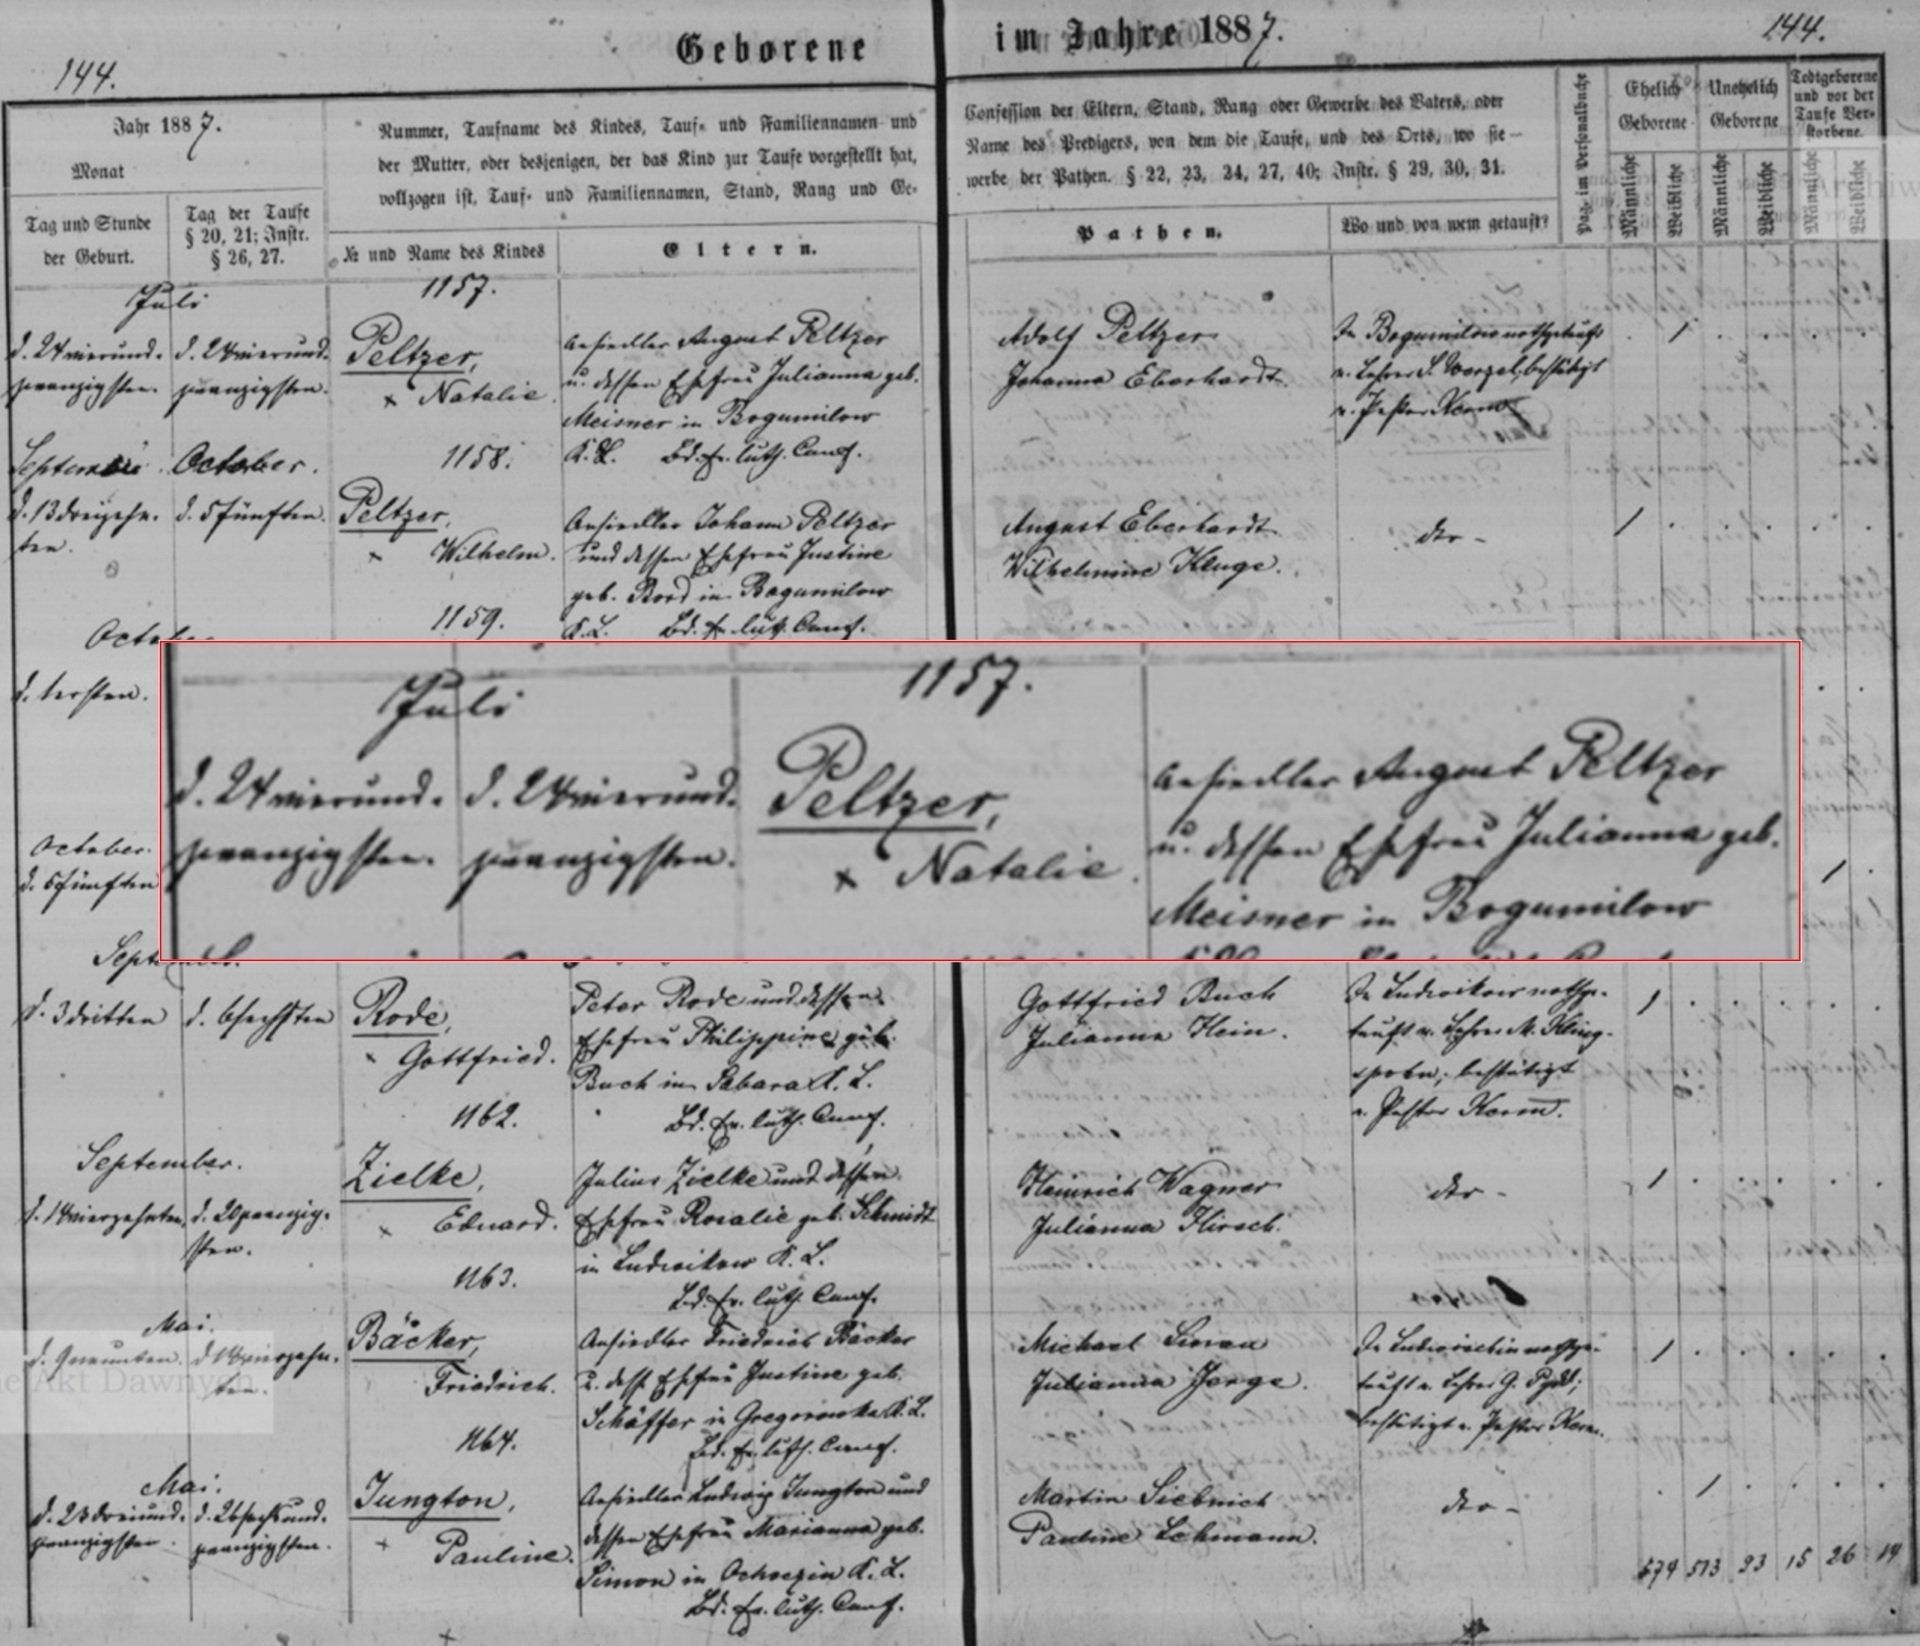 Geborene
im Jahre 1887.
144.
144.
Jahr 1887.
Monat
Tag und Stunde
der Geburt.
Tag der Taufe
§ 20, 21; Instr.
§ 26, 27.
Nummer, Taufname des Kindes, Tauf- und Familiennamen und
der Mutter, oder desjenigen, der das Kind zur Taufe vorgestellt hat,
vollzogen ist, Tauf- und Familiennamen, Stand, Rang und Ge-
№ und Name des Kindes
Eltern.
Confession der Eltern, Stand, Rang oder Gewerbe des Vaters, oder
Name des Predigers, von dem die Taufe, und des Orts, wo sie
werbe der Pathen. § 22, 23, 24, 27, 40; Instr. § 29, 30, 31.
Pathen.
Wo und von wem getauft?
Pag. im Personalbuche
Ehelich
Geborene
Unehelich
Geborene
Todtgeborene
und vor der
Taufe Ver-
storbene.
Männliche
Weibliche
Männliche
Weibliche
Männliche
Weibliche
Juli
1157.
d. 24 vierund-
zwanzigsten.
d. 24 vierund-
zwanzigsten.
Peltzer,
× Natalie
Ansiedler August Peltzer
u. dessen Ehefrau Julianna geb.
Meisner in Bogumilow
K. L. Bd. Ev. luth. Conf.
Adolf Peltzer
Johanna Eberhardt
In Bogumilow nothgetauft
v. Lehrer bestätigt
v. Pastor
September
October.
1158.
d. 13 dreizehn-
ten.
d. 5 fünften.
Peltzer,
× Wilhelm.
Ansiedler Johann Peltzer
und dessen Ehefrau Justine
geb. in Bogumilow
K. L. Bd. Ev. luth. Conf.
August Eberhardt
Wilhelmine Kluge.
dto -
1159.
d. 1 ersten.
Juli
1157.
d. 24 vierund-
zwanzigsten.
d. 24 vierund-
zwanzigsten.
Peltzer,
× Natalie.
Ansiedler August Peltzer
u. dessen Ehefrau Julianna geb.
Meisner in Bogumilow
October.
d. 5 fünften
d. 3 dritten
d. 6 sechsten
Rode,
× Gottfried.
Peter Rode und dessen
Ehefrau Philippine geb.
Buch in K. L.
Bd. Ev. luth. Conf.
Gottfried Buch
Julianna Hein.
In Ludwikow nothge-
tauft v. Lehrer M. Kling-
bestätigt
v. Pastor
1162.
September.
d. 14 vierzehnten
d. 20 zwanzig-
sten.
Zielke,
× Eduard.
Julius Zielke und dessen
Ehefrau Rosalie geb. Schmidt
in Ludwikow K. L.
Bd. Ev. luth. Conf.
Heinrich Wagner
Julianna Hirsch.
dto -
1163.
Mai.
d. 9 neunten.
d. 14 vierzehn-
ten.
Bäcker,
Friedrich.
Ansiedler Friedrich Bäcker
u. dess. Ehefrau Justine geb.
Schäffer in K. L.
Bd. Ev. luth. Conf.
Michael Simon
Julianna Jerge.
In nothge-
tauft v. Lehrer G.
bestätigt v. Pastor
1164.
Mai.
d. 23 dreiund-
zwanzigsten.
d. 26 sechsund-
zwanzigsten.
Jungton,
× Pauline.
Ansiedler Ludwig Jungton und
dessen Ehefrau Marianna geb.
Simon in K. L.
Bd. Ev. luth. Conf.
Martin
Pauline Lehmann.
dto -
513 23 15 26 19